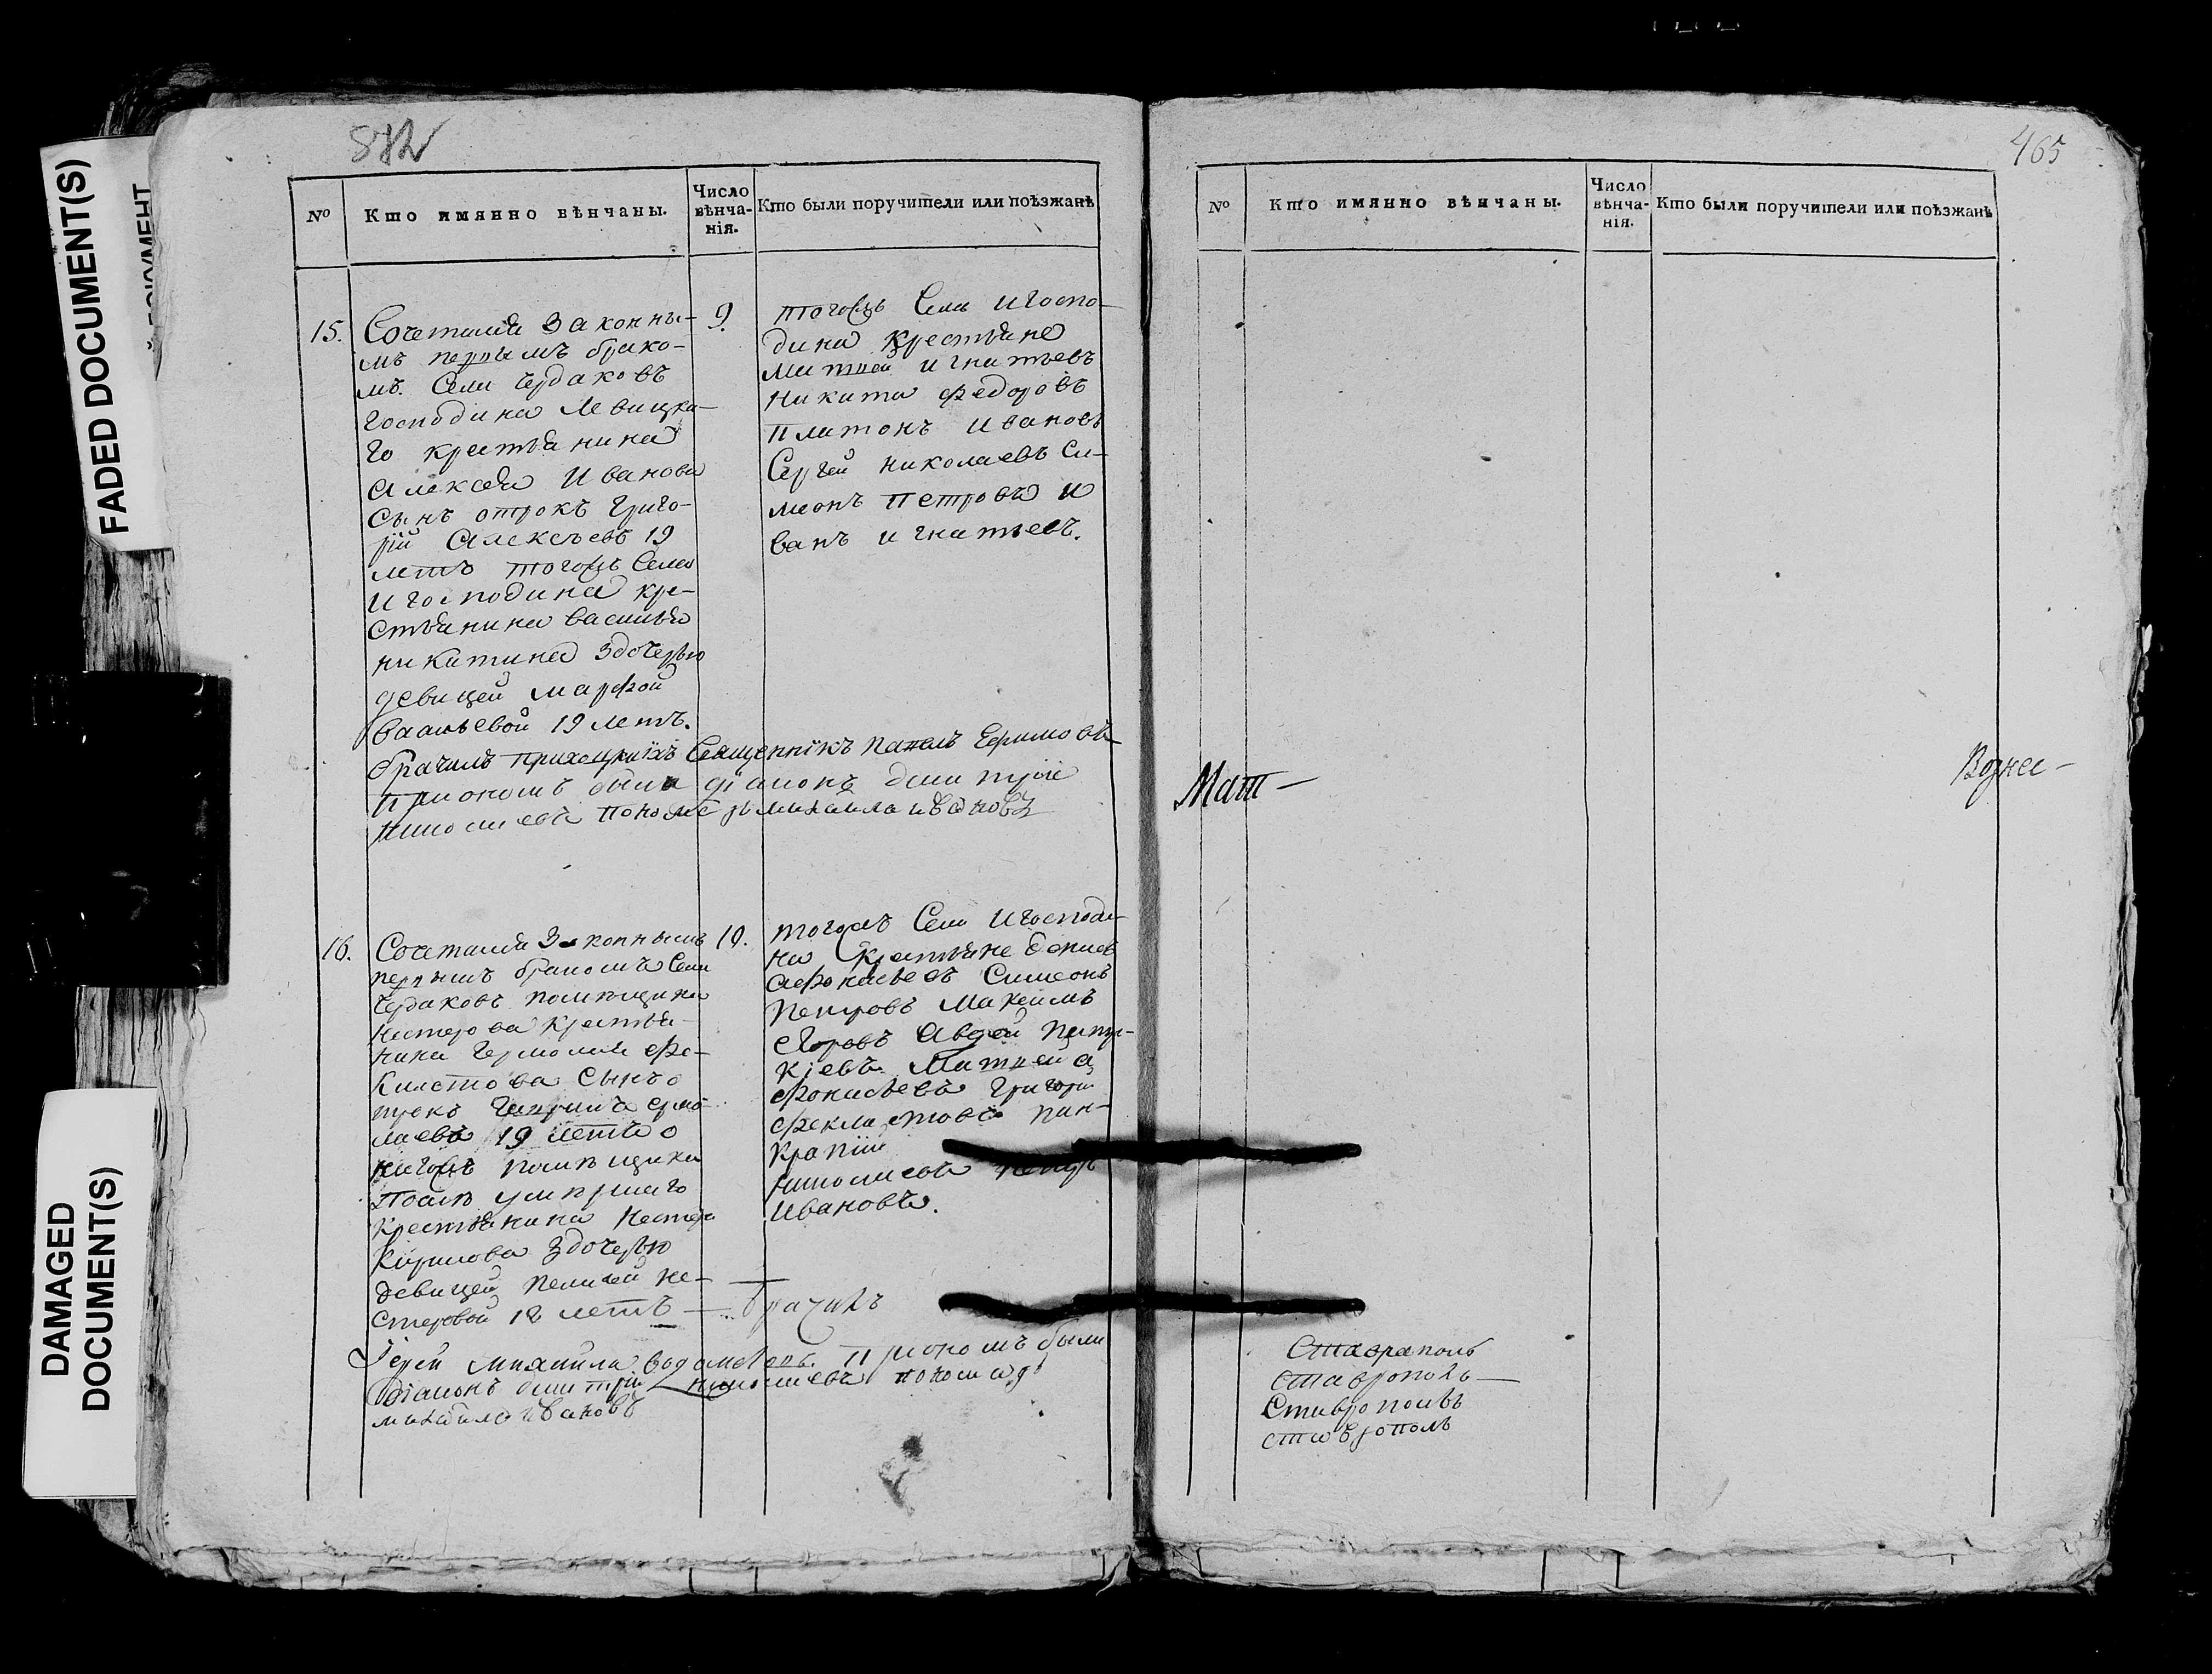 FADED DOCUMENT(S)
DAMAGED
DOCUMENT(S)
872
№ Кто имянно вѣнчаны. Число вѣнча-нія. Кто были поручители или поѣзжанѣ
15.
Сочетался законны-
мъ первымъ брако-
мъ. Села Чердаковъ
господина Левицка-
го крестьянина
Алексея Иванова
сынъ отрокъ Григо-
рій Алексѣевъ 19
летъ тогожъ Села
и господина кре-
стьянина Василья
Никитина здочерью
девицей Марфой
Васильевой 19 летъ.
9.
тогожъ Села и госпо-
дина крестьяне
Матвей Игнатьевъ
Никита Федоровъ
Платонъ Ивановъ
Сергей Николаевъ Си-
меонъ Петровъ И
ванъ Игнатьевъ.
Священникъ Павелъ Ефимовъ
были діаконъ Дмитрій
Михаила Ивановъ
16.
Сочетался Законнымъ
первымъ бракомъ Села
Чердаковъ помещика
Нестерова крестья-
нина Ермолая Фе-
клистова сынъ о
трокъ Ермо-
лаевъ 19 летъ о
помещика
умершаго
крестьянина Нестера
Кирилова здочерью
девицей Пелагей Не-
стеровой 18 летъ —
10.
тогожъ Села и господи-
на крестьяне Денисъ
Афонасьевъ Симеонъ
Петровъ Максимъ
Егоровъ Авдей Патри-
кіевъ Матвей А
фонасьевъ Григорій
Феклистовъ Пан-
кратій
Петръ
Ивановъ.
брачилъ
Іерей Михаила При ономъ были
діаконъ Дмитрій пономарь
Михаила Ивановъ
465
№ Кто имянно вѣнчаны. Число вѣнча-нія. Кто были поручители или поѣзжанѣ
Мат —
Вознес —
Ставраполь
ставрополь —
Ставрополь
ставрополь